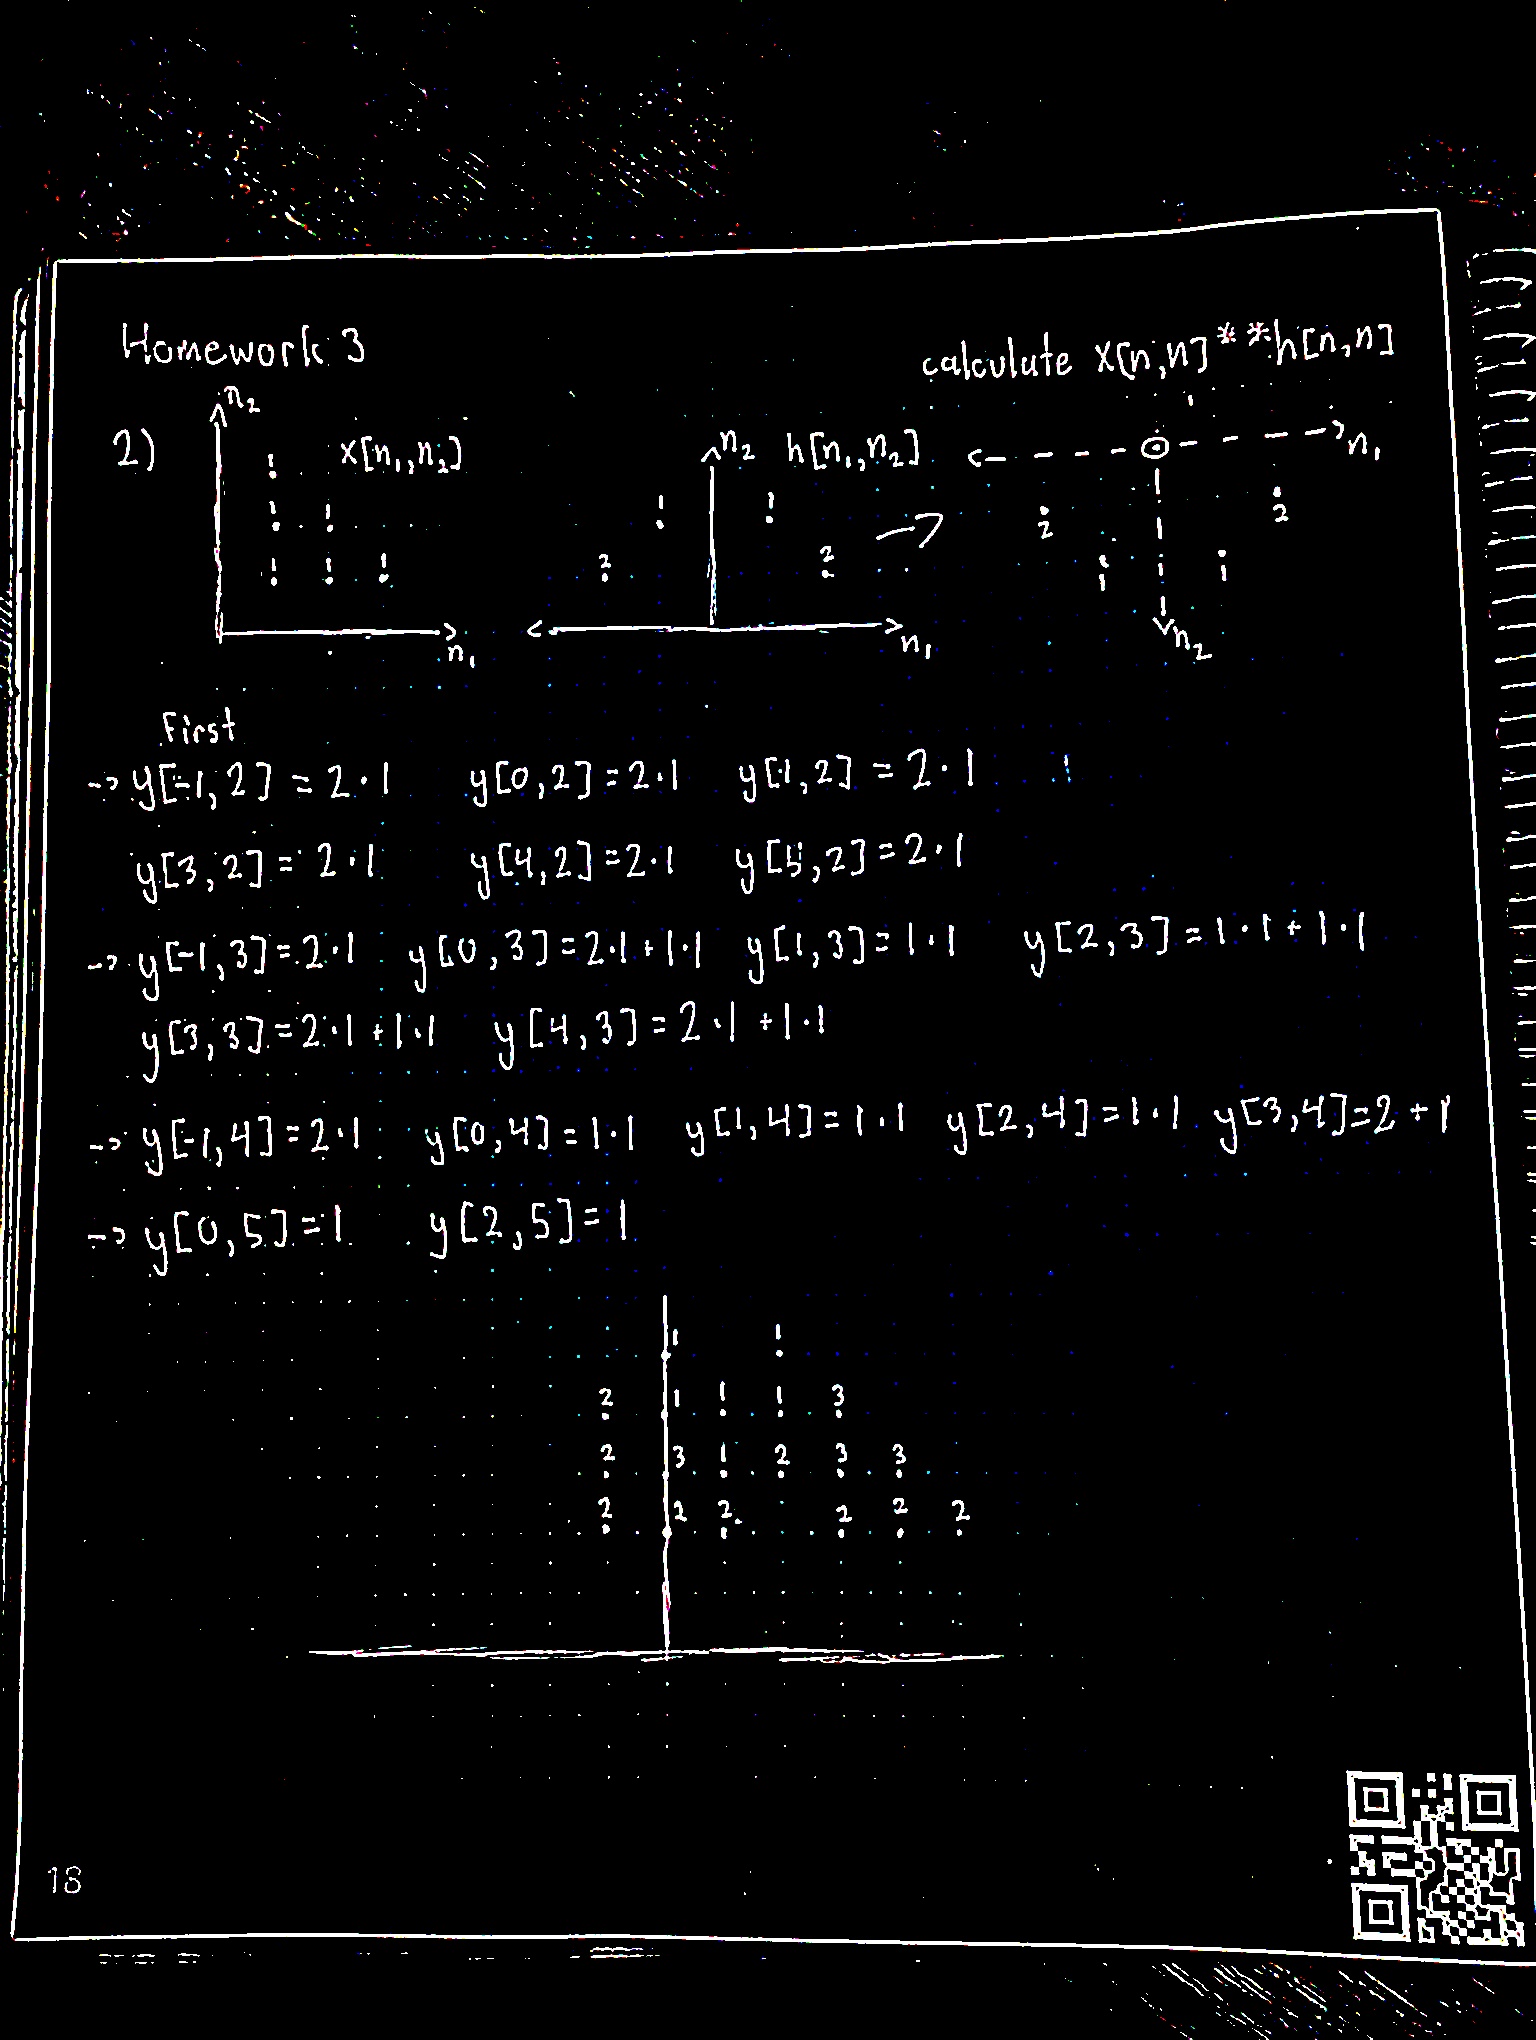 Homework 3
calculate x[n,n]**h[n,n]
2)
n2 x[n1,n2] n1
1
1 1
1 1 1
n2 h[n1,n2] n1
1 1
2 2
n1 n2
2 2
1 1
First
-> y[-1,2] = 2·1 y[0,2] = 2·1 y[1,2] = 2·1
y[3,2] = 2·1 y[4,2] = 2·1 y[5,2] = 2·1
-> y[-1,3] = 2·1 y[0,3] = 2·1+1·1 y[1,3] = 1·1 y[2,3] = 1·1+1·1
y[3,3] = 2·1+1·1 y[4,3] = 2·1+1·1
-> y[-1,4] = 2·1 y[0,4] = 1·1 y[1,4] = 1·1 y[2,4] = 1·1 y[3,4] = 2+1
-> y[0,5] = 1 y[2,5] = 1
1 1
2 1 1 1 3
2 3 1 2 3 3
2 2 2 2 2 2
18